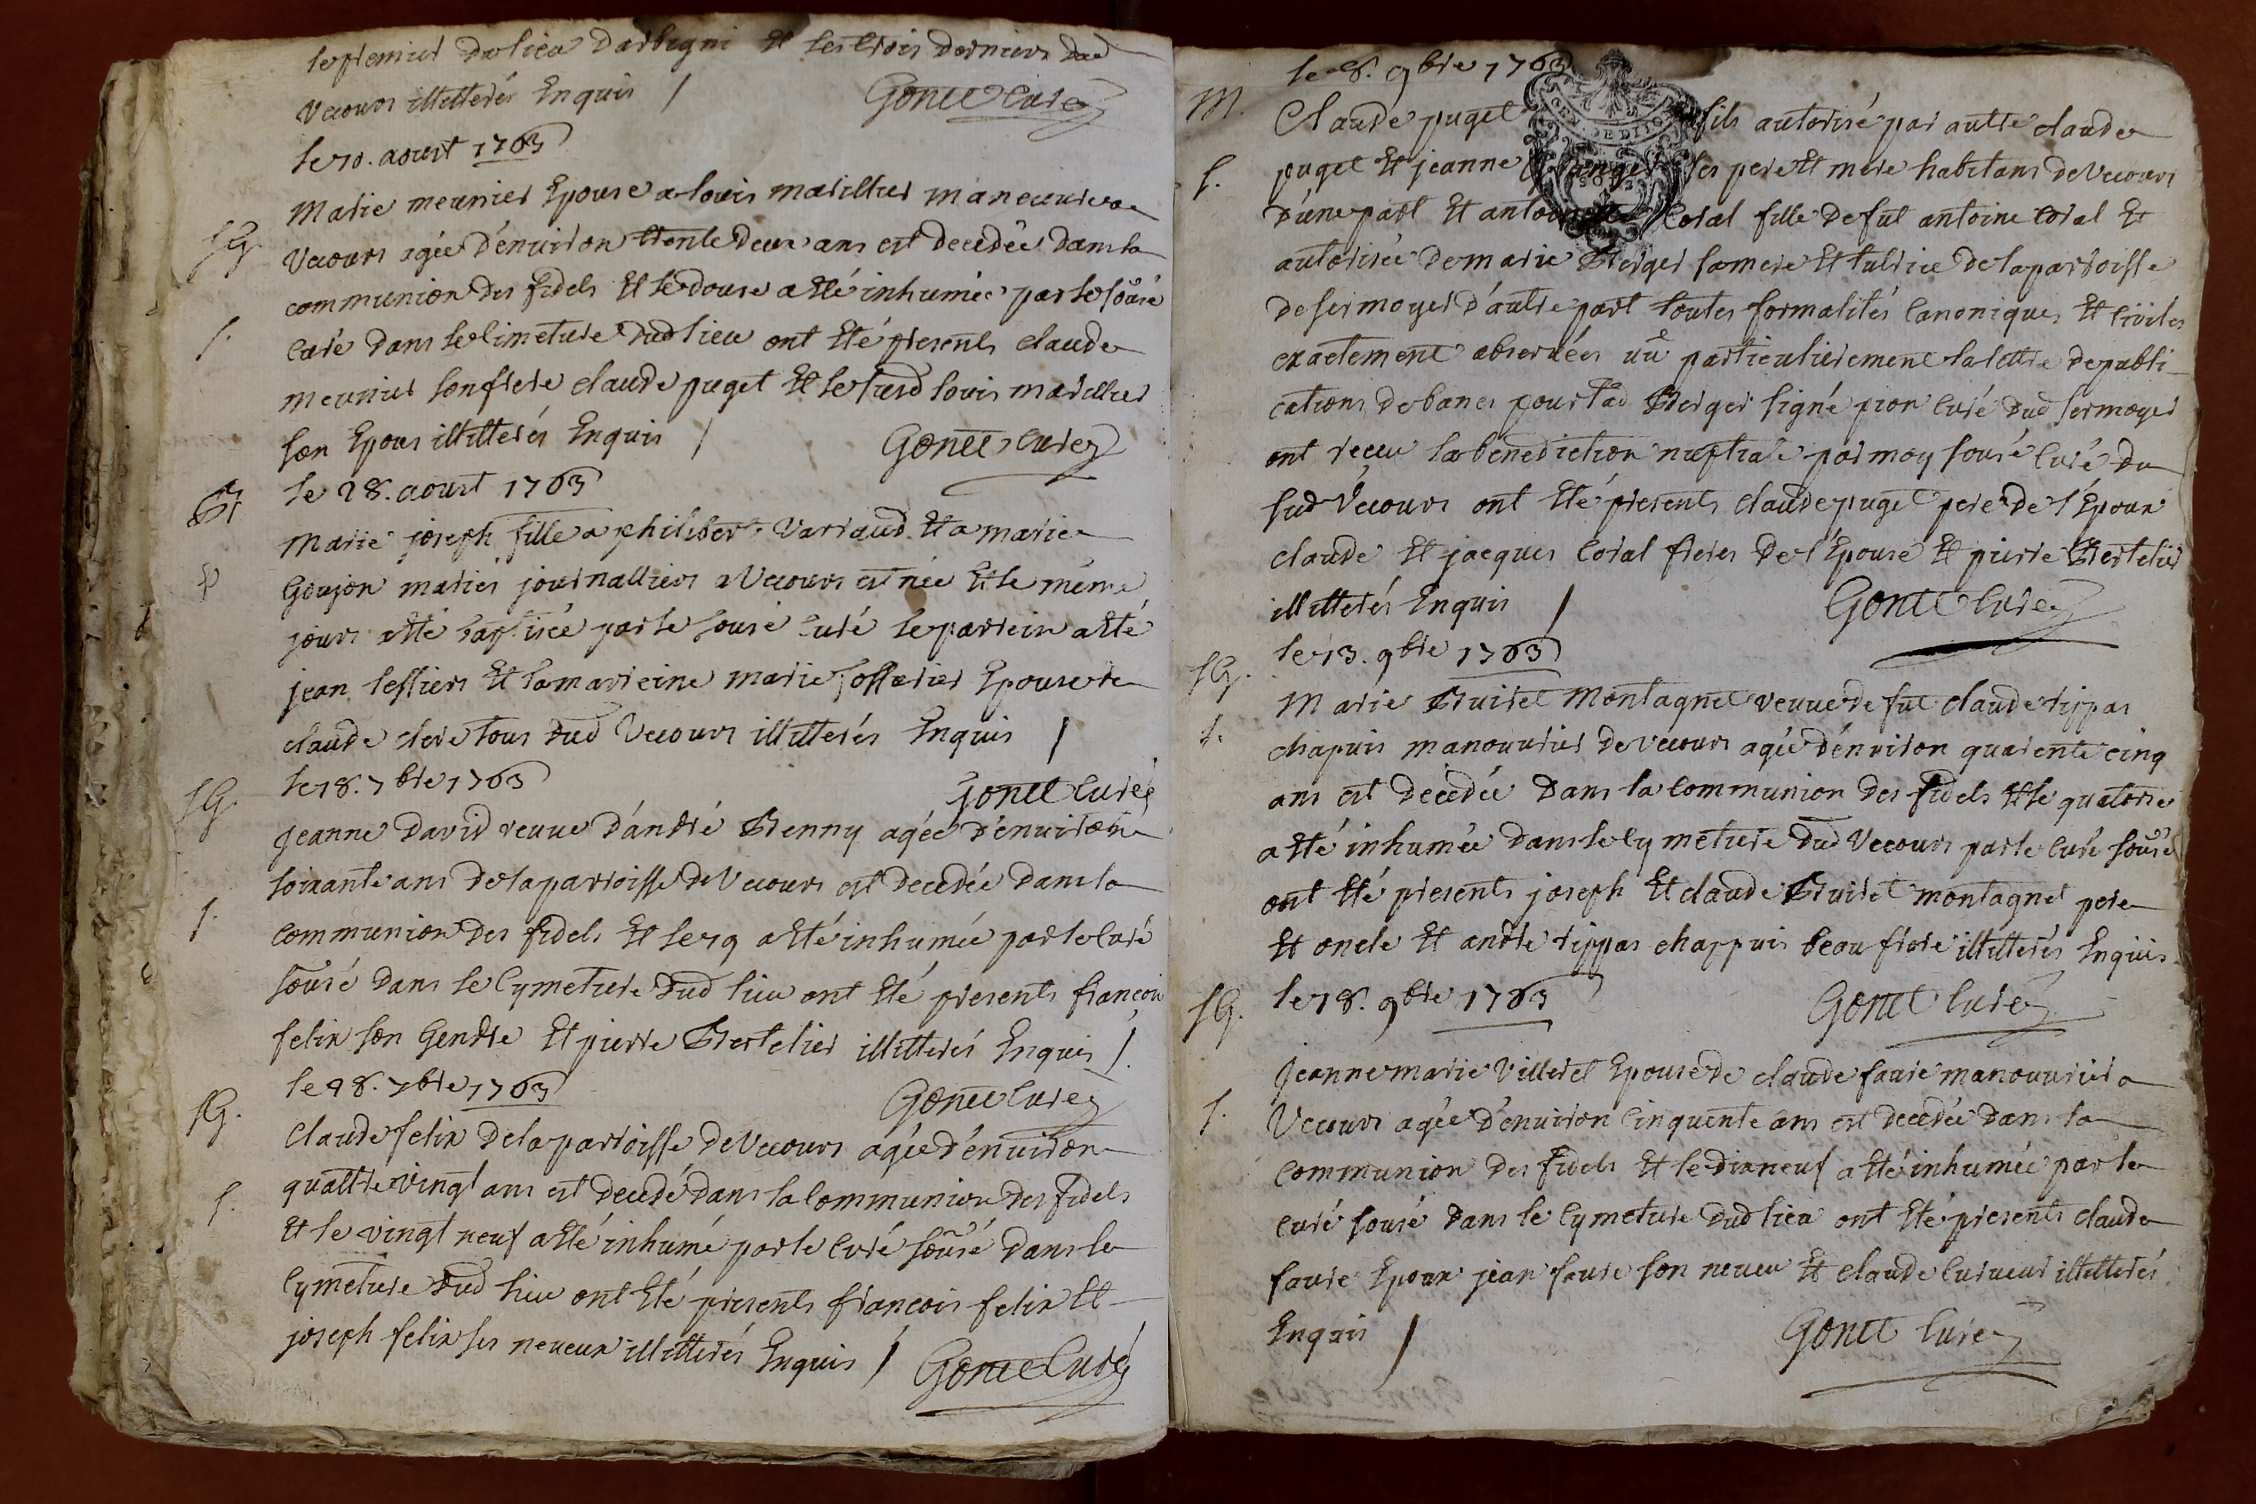 le premier du lieu d'arbigni et les trois derniers dud
Vecours illitterés Enquis /
Gonet curé
le 10. aoust 1763
SG
Marie meunier Epouse a louis marillier manouvrier a
Vecours agée d'environ trente deux ans est decedée dans la
communion des fidels et le douse a eté inhumée par le sousé
S.
curé dans le cimeture dud lieu ont eté presents claude
meunier son frere claude puget et le susd louis marillier
son Epoux illitterés Enquis /
Gonet curé
le 28. aoust 1763
B
Marie joseph fille a philibert Varraud et a marie
Goujon mariés journalliers a Vecours est née et le même
jours a eté baptisée par le sousé curé le parrein a eté
jean tessiers et la marreine marie joffarier Epouse de
claude cleretous dud Vecours illitterés Enquis /
Gonet curé
le 18. 7bre 1763
SG.
jeanne david veuve d'andré Benny agée d'environ
soixante ans de la parroisse de Vecours est decedée dans la
S.
communion des fidels et le 19 a eté inhumée par le curé
sousé dans le cymeture dud lieu ont eté presents françois
felix son Gendre et pierre Bertelier illitterés Enquis /.
Gonet curé
le 28. 7bre 1763
SG.
Claude felix de la parroisse de Vecours agée d'environ
quattre vingt ans est decedé dans la communion des fidels
S.
et le vingt neuf a eté inhumé par le curé sousé dans le
cymeture dud lieu ont eté presents françois felix et
joseph felix ses neveux illitterés Enquis /
Gonet curé
le 8. 9bre 1763
M.
Claude puget fils autorisé par autre claude
S.
puget et jeanne ses pere et mere habitans de Vecours
d'une part et antoinette coral fille de fut antoine coral et
autorisée de marie Berger sa mere et tutrice de la parroisse
de sermoyer d'autre part toutes formalités canoniques et civiles
exactement observées vû particulierement la lettre de publi-
cations de bancs pour lad Berger signé pion curé dud sermoyer
ont reçeu la benediction nuptiale par moy sousé curé du
sud Vecours ont eté presents claude puget pere de l'Epoux
claude et jacques coral freres de l'Epouse et pierre Bertelier
illitterés Enquis /
Gonet curé
le 13. 9bre 1763
SG.
Marie Buiret Montagnet veuve de fut claude tippas
chapuis manouvrier de vecours agée d'environ quarente cinq
ans est decedée dans la communion des fidels et le quatorse
a eté inhumée dans le cymeture dud Vecours par le curé sousé
ont eté presents joseph et claude Buiret montagnet pere
et oncle et andré tippas chappuis beau frere illitterés Enquis
Gonet curé
le 18. 9bre 1763
SG.
jeanne marie Villeret Epouse de claude faure manouvrier a
S.
Vecours agée d'environ cinquente ans est decedée dans la
communion des fidels et le dixneuf a eté inhumée par le
curé sousé dans le cymeture dud lieu ont eté presents claude
faure Epoux jean faure son neveu et claude curveur illitterés
Enquis /
Gonet curé